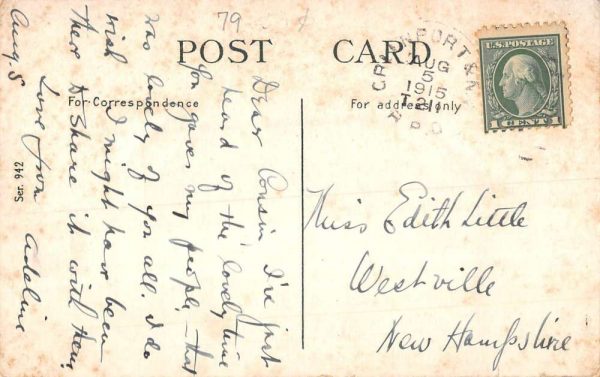 79
POST CARD
For Correspondence
For address only
AUG
5
1915
R.P.O.
U.S. POSTAGE
1 CENT 1
Dear Cousin I've just
heard of the lovely time
you gave my people, that
was lovely of you all. I do
wish I might have been
there to share it with them.
Love from Adeline
Aug. 5
Miss Edith Little
Westville
New Hampshire
Ser. 942